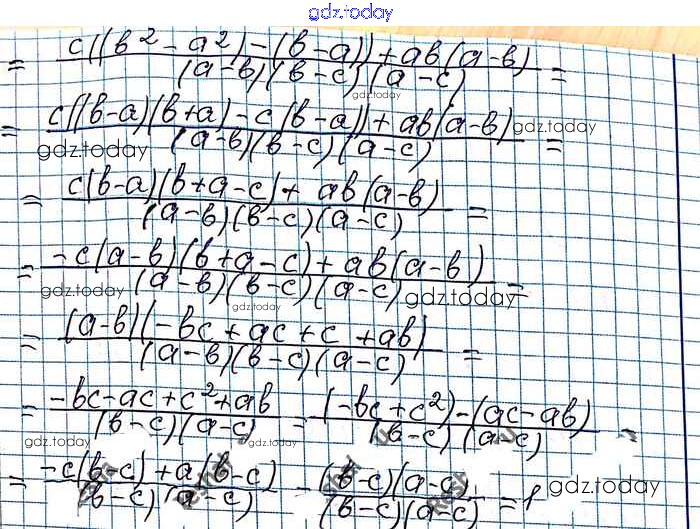 gdz.today
= c((b² - a²) - (b - a)) + ab(a - b) / (a - b)(b - c)(a - c) =
gdz.today
= c((b - a)(b + a) - c(b - a)) + ab(a - b) / (a - b)(b - c)(a - c) = gdz.today
gdz.today
= c(b - a)(b + a - c) + ab(a - b) / (a - b)(b - c)(a - c) =
= -c(a - b)(b + a - c) + ab(a - b) / (a - b)(b - c)(a - c) =
gdz.today gdz.today gdz.today
= (a - b)(-bc + ac + c + ab) / (a - b)(b - c)(a - c) =
= -bc - ac + c² + ab / (b - c)(a - c) = (-bc + c²) - (ac - ab) / (b - c)(a - c) =
gdz.today gdz.today
= -c(b - c) + a(b - c) / (b - c)(a - c) = (b - c)(a - c) / (b - c)(a - c) = 1 gdz.today